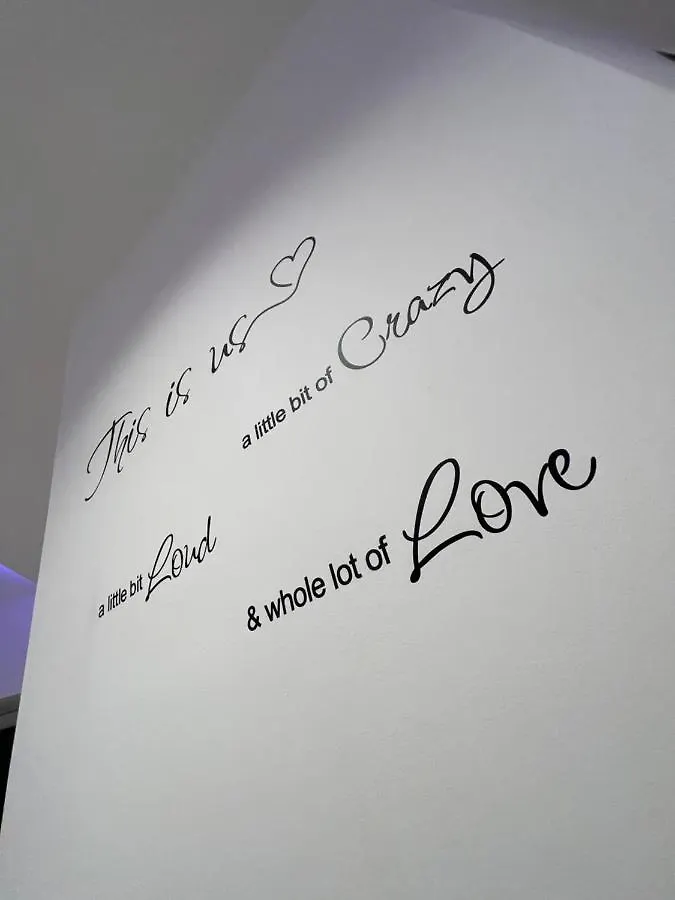 This is us
a little bit of Crazy
a little bit Loud
& whole lot of Love